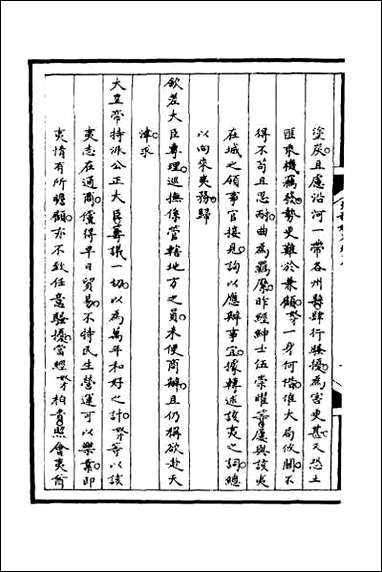 塗炭且慮沿河一帶各州縣肆行騷擾為害更甚又恐土
匪乘機竊發勢更難於兼顧奴才一身何惜惟大局攸關不
得不苟且忍耐曲為羈縻昨經紳士伍崇曜等屢與該夷
在城之領事官接見詢以應辦事宜據稱述該夷之詞總
以向來夷務歸
欽差大臣專理巡撫係管轄地方之員未便商辦且仍稱欲赴天
津求
大皇帝特派公正大臣籌議一切以為萬年和好之計奴才等以該
夷志在通商儻得早日貿易不特民生營運可以樂業即
夷情有所瞻顧亦不致任意騷擾當經奴才柏貴照會夷酋